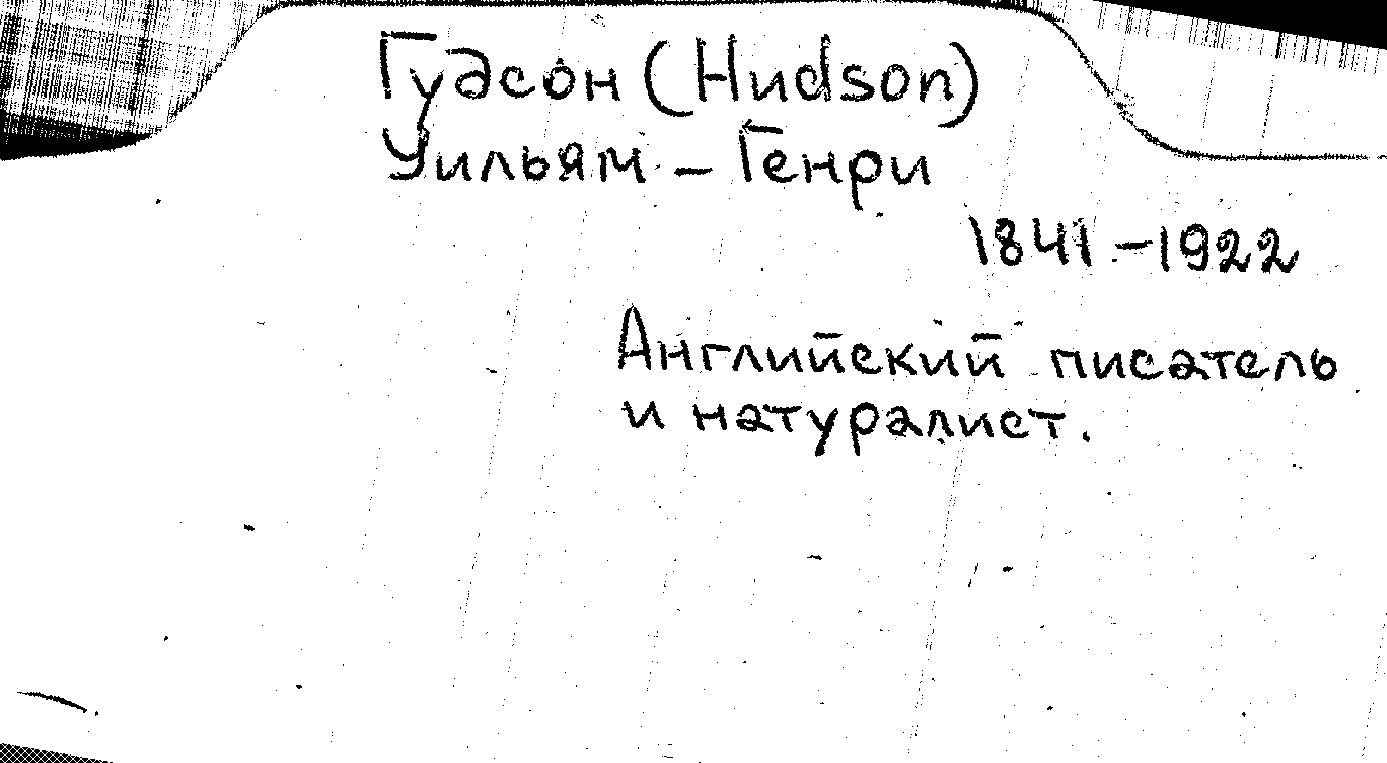 Гудсон (Hudson)
Уильям – Генри
1841 – 1922
Английский писатель
и натуралист.